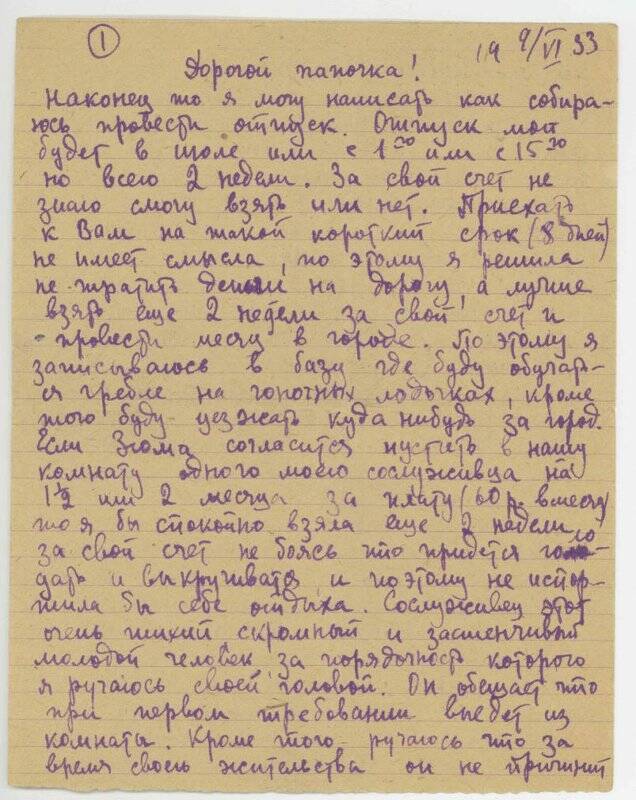 1
19 9/VI 33
Дорогой папочка!
Наконец то я могу написать как собира-
юсь провести отпуск. Отпуск мой
будет в июле или с 1го или с 15го
но всего 2 недели. За свой счет не
знаю смогу взять или нет. Приехать
к Вам на такой короткий срок (8 дней)
не имеет смысла, по этому я решила
не тратить деньги на дорогу, а лучше
взять еще 2 недели за свой счет и
провести месяц в городе. По этому я
записываюсь в базу где буду обучать-
ся гребле на гоночных лодочках, кроме
того буду уезжать куда нибудь за город.
Если Зюма согласится пустить в нашу
комнату одного моего сослуживца на
1½ или 2 месяца за плату (60 р. в месяц)
то я бы спокойно взяла еще 2 недели
за свой счет не боясь что придется голо-
дать и выкручиватся, и поэтому не испор-
тила бы себе отдыха. Сослуживец этот
очень тихий скромный и застенчивый
молодой человек, за порядочность которого
я ручаюсь своей головой. Он обещает что
при первом требовании выедет из
комнаты. Кроме того ручаюсь что за
время своего жительства он не причинит